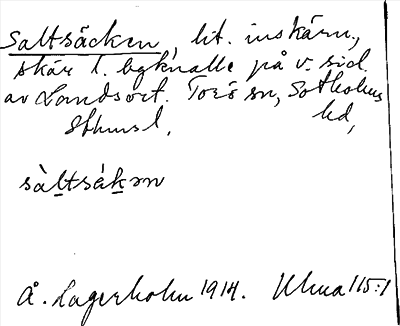 Saltsäcken, lit. inskärn.,
skär l. bgknalle på v. sid.
av Landsort. Torö sn, Sotholms
hd,
Sthms l.
sàltsák ən
Å. Lagerholm 1914. Ulma 115:1